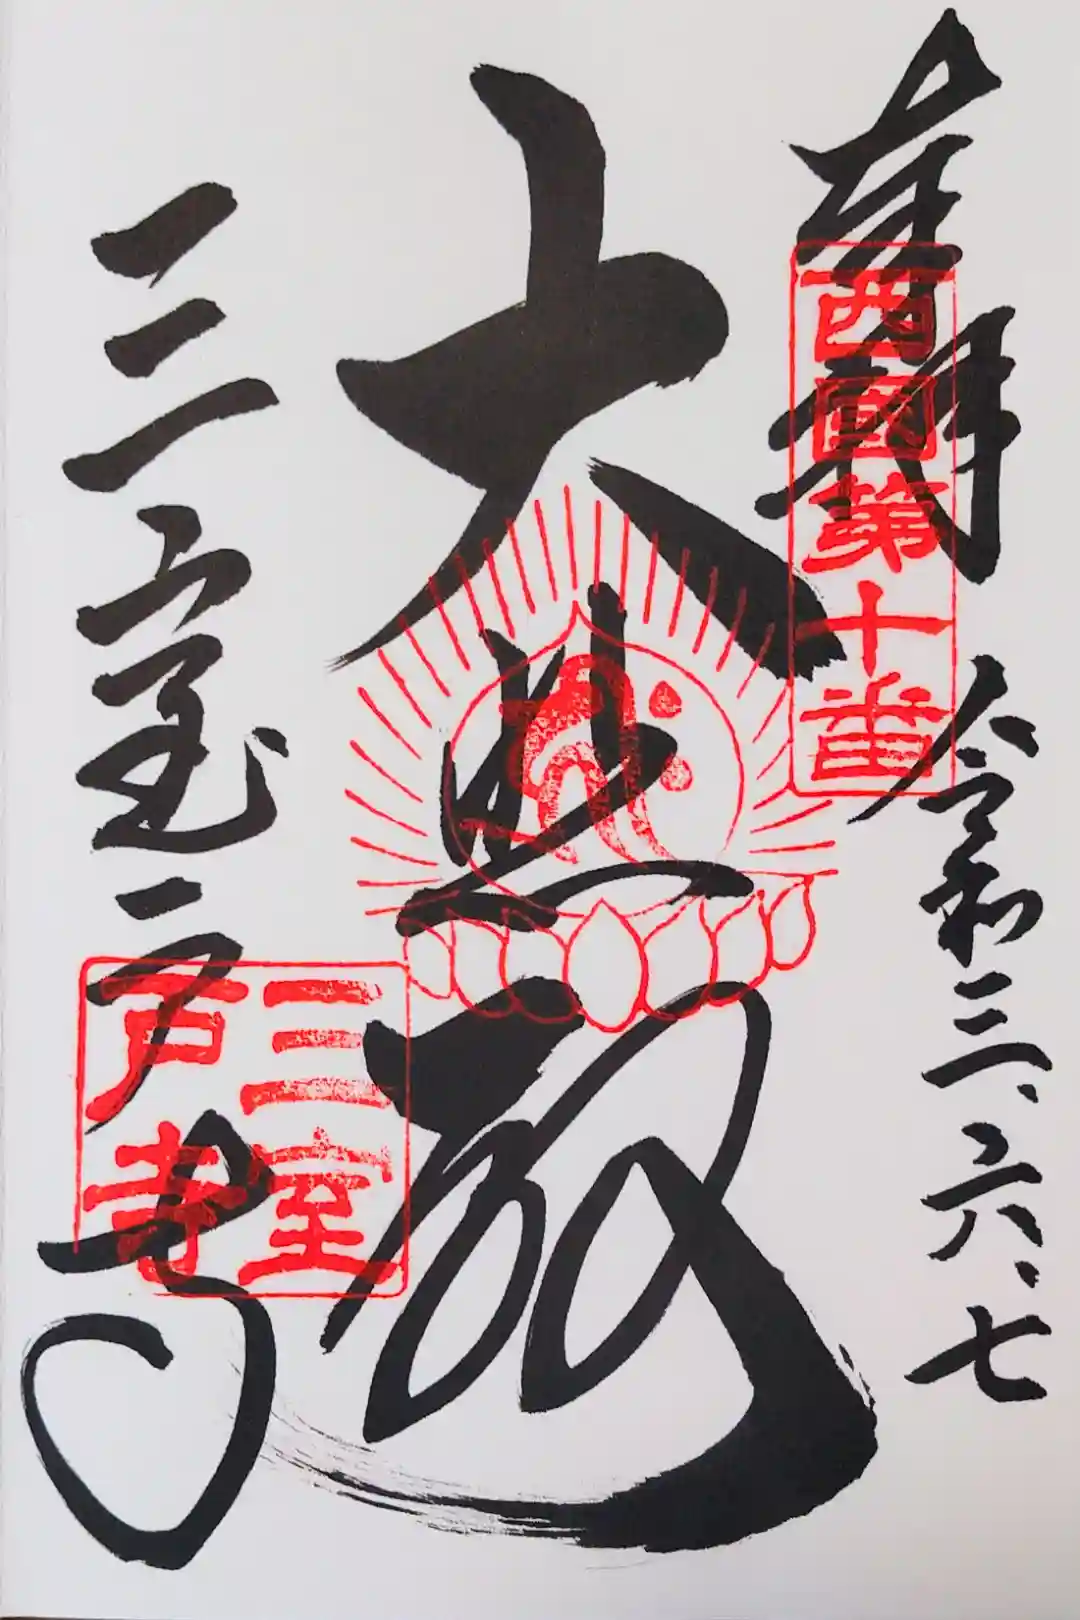 奉拝
西國第十番
令和三、六、七
大悲殿
三室戸寺
三室
戸寺